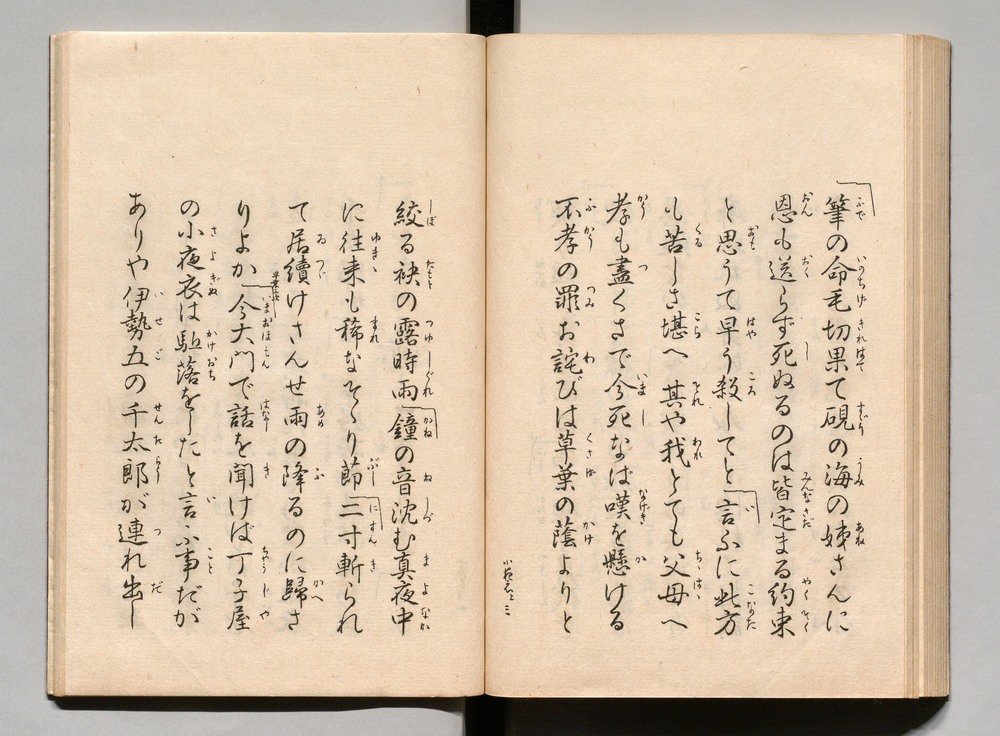 筆の命毛切果て硯の海の姉さんに
恩も送らず死ぬるのは皆定まる約束
と思うて早う殺してと言ふに此方
も苦しさ堪へ其や我とても父母へ
孝も盡くさで今死なば嘆を懸ける
不孝の罪お詫びは草葉の蔭よりと
絞る袂の露時雨鐘の音沈む真夜中
に往来も稀なそゝり節二寸斬られ
て居續けさんせ雨の降るのに歸さ
りよか今大門で話を聞けば丁子屋
の小夜衣は駈落をしたと言ふ事だが
ありや伊勢五の千太郎が連れ出し